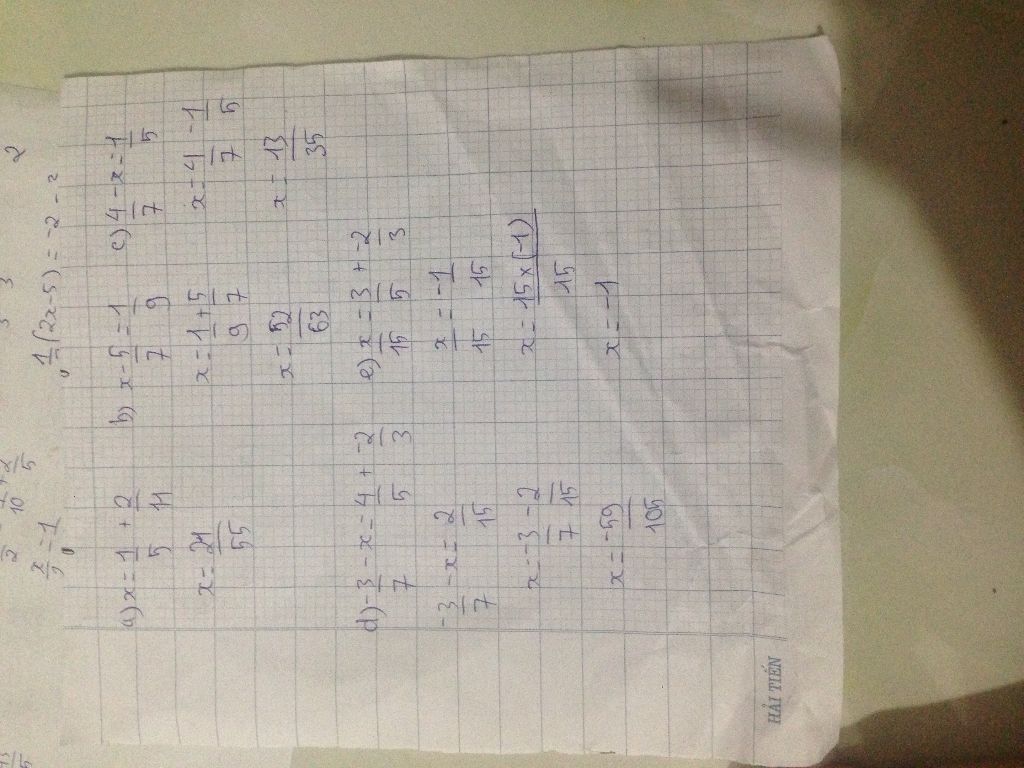 1/2(2x-5) = -2 -
x/2 = 1
a) x = 1/5 + 2/11
x = 21/55
b) x - 5/7 = 1/9
x = 1/9 + 5/7
x = 52/63
c) 4/7 - x = 1/5
x = 4/7 - 1/5
x = 13/35
d) -3/7 - x = 4/5 + -2/3
-3/7 - x = 2/15
x = -3/7 - 2/15
x = -59/105
e) x/15 = 3/5 + -2/3
x/15 = -1/15
x = 15x(-1)/15
x = -1
HẢI TIẾN